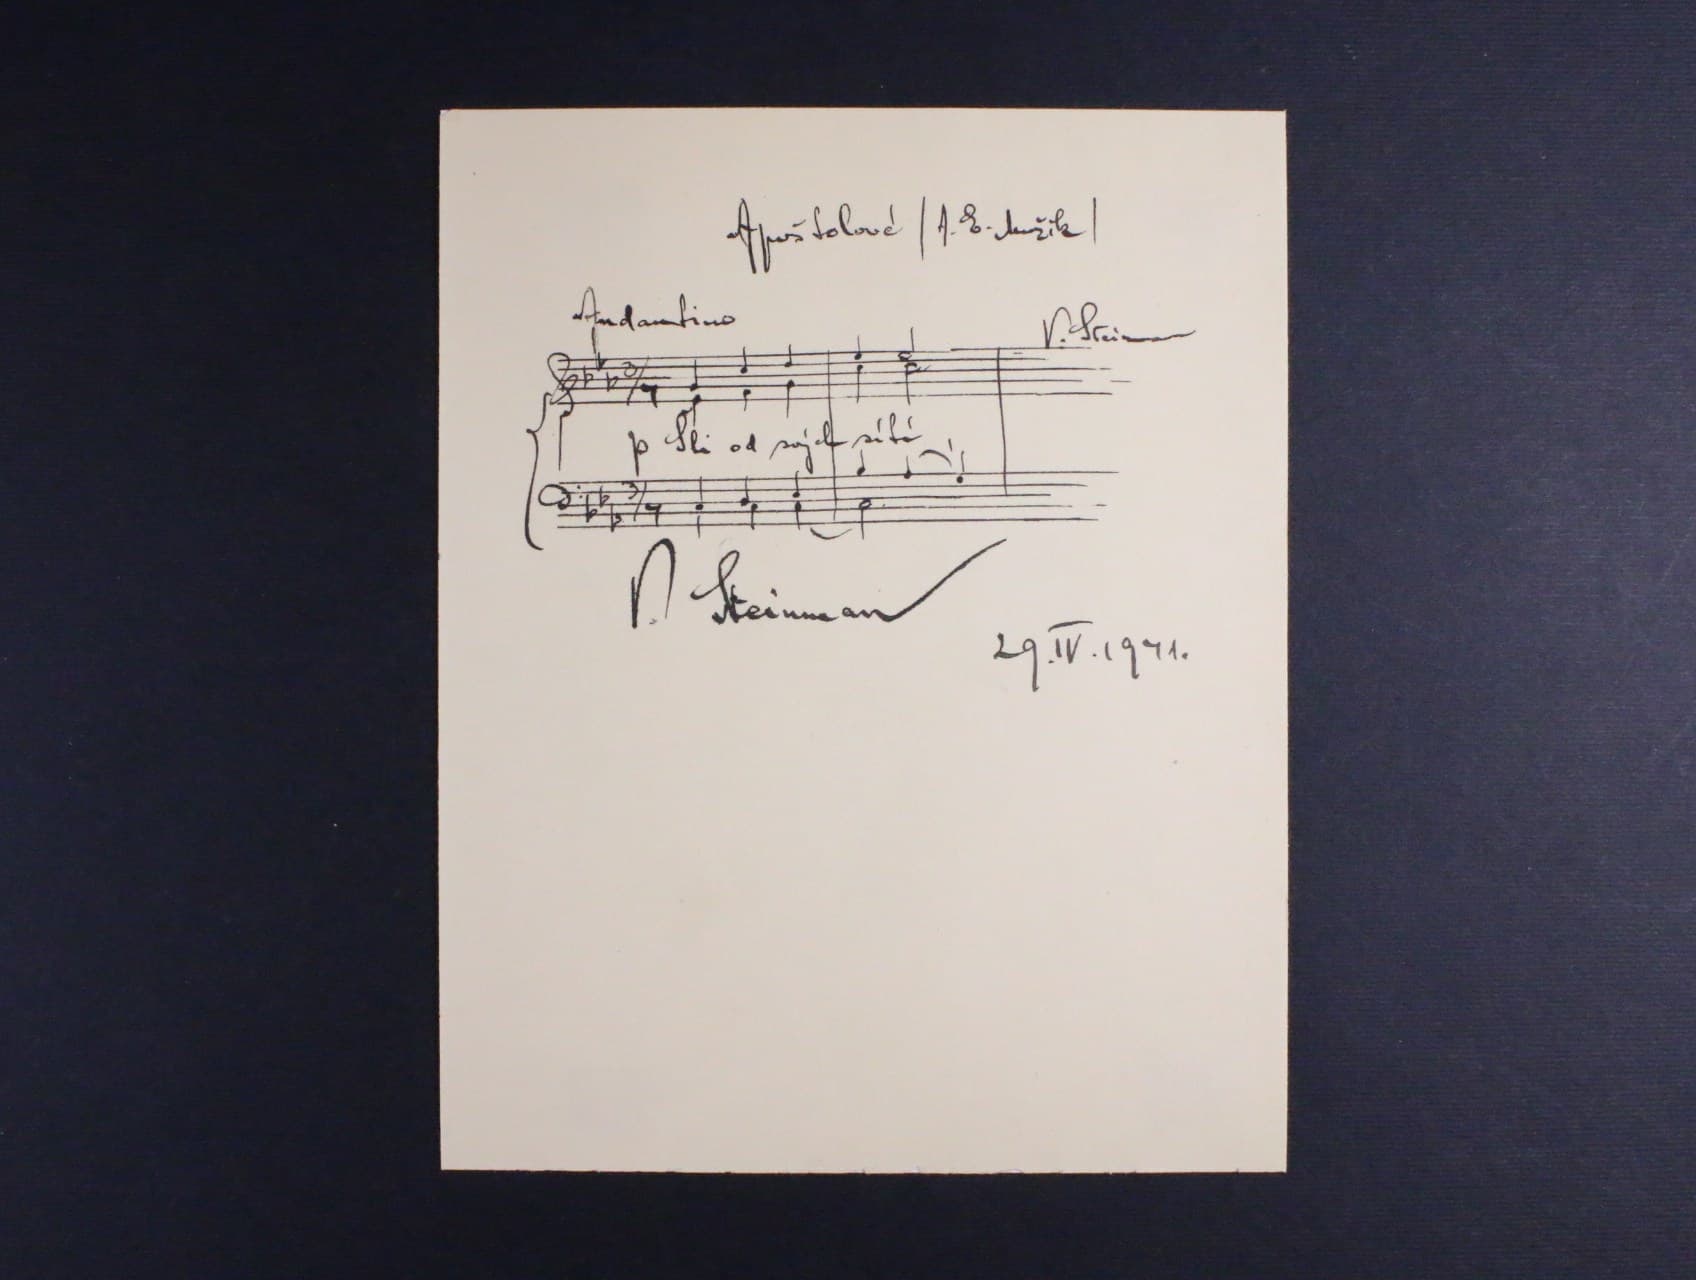 Apoštolové (A. E. Mužík)
Andantino
V. Steinman
3/4
p Šli od svých sítí
3/4
V. Steinman
29.IV.1941.